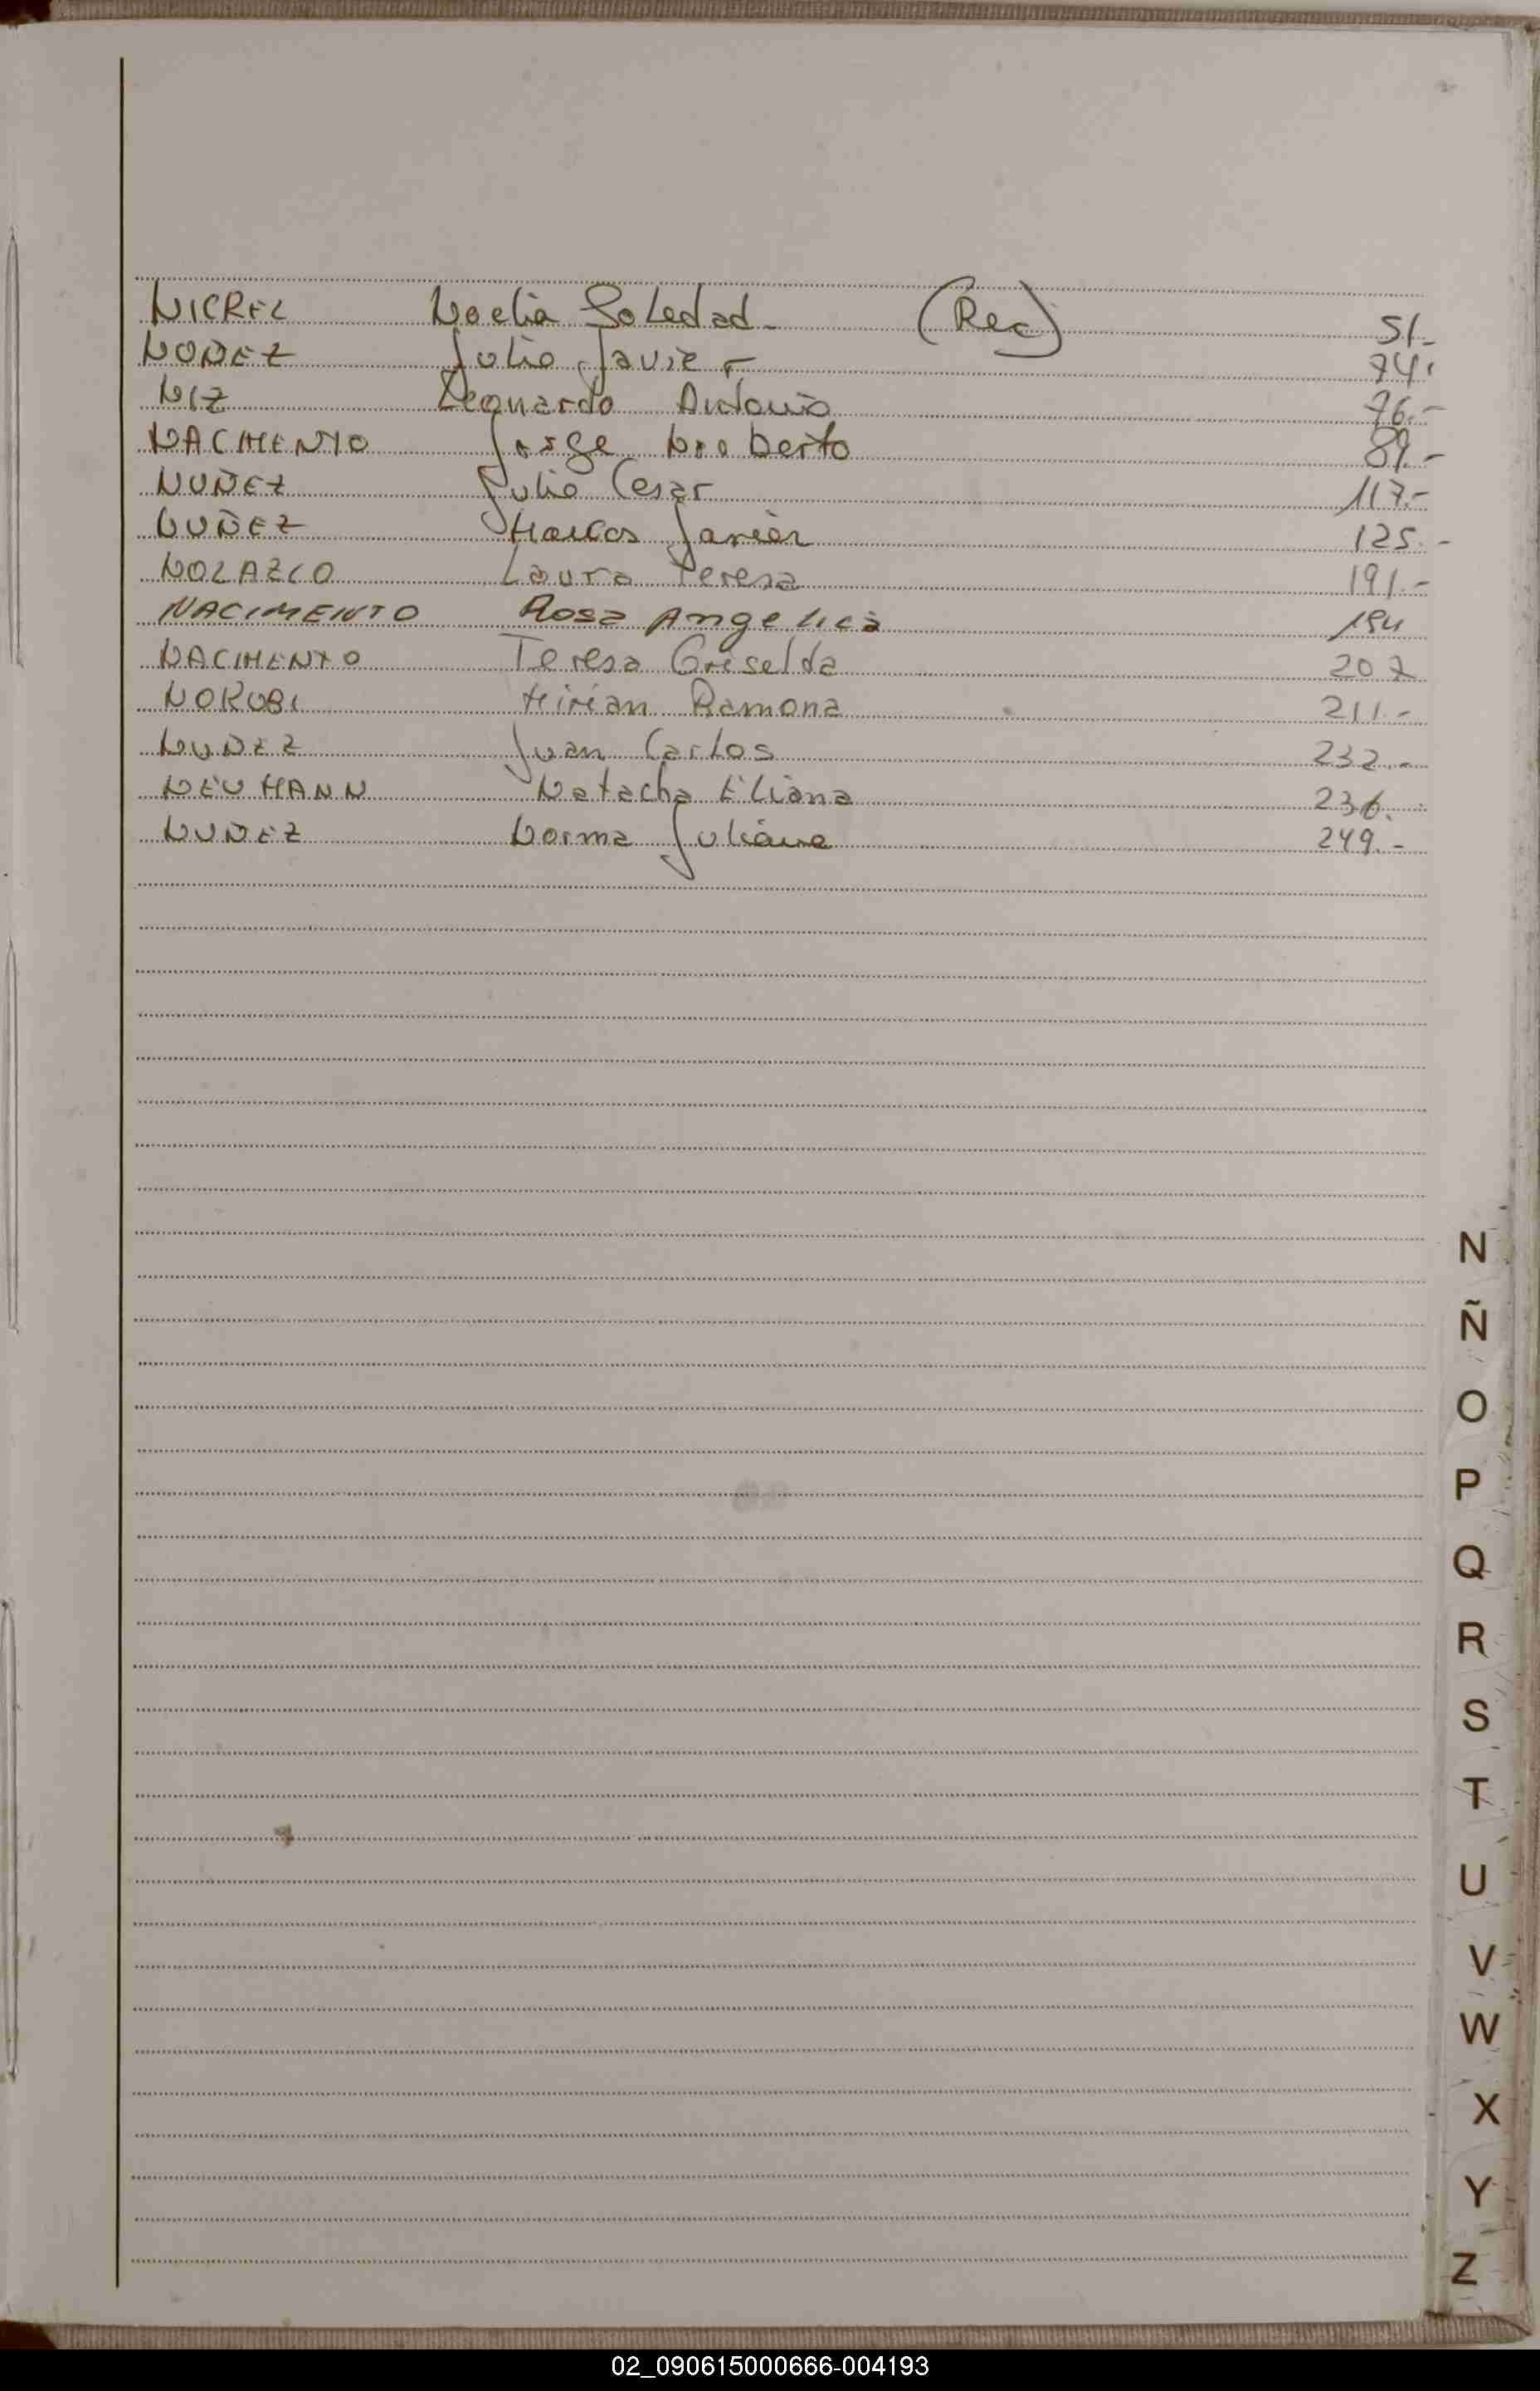 NICREL Noelia Soledad - (Rec) 51.-
NUÑEZ Julio Javier 74.
NIZ Leonardo Antonio 76.-
NACIMENTO Jorge Norberto 89.-
NUÑEZ Julio Cesar 117.-
NUÑEZ Marcos Javier 125.-
NOLAZCO Laura Teresa 191.-
NACIMENTO Rosa Angelica 194
NACIMENTO Teresa Griselda 207
Mirian Ramona 211.-
NUÑEZ Juan Carlos 232.-
NEUMANN Natacha Eliana 236.
NUÑEZ Norma Juliana 249.-
N
Ñ
O
P
Q
R
S
T
U
V
W
X
Y
Z
02_090615000666-004193